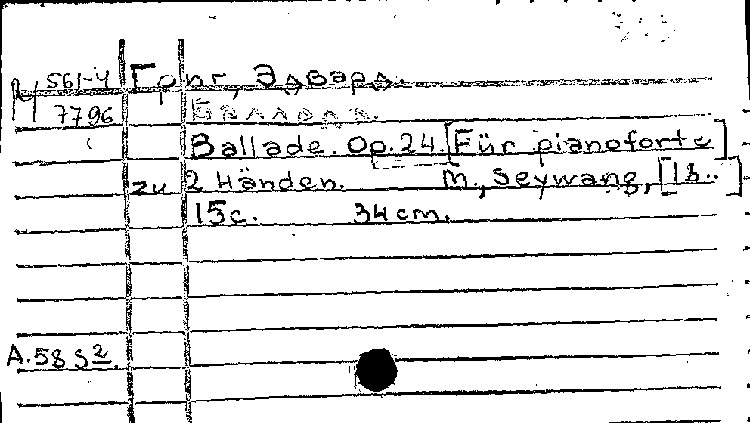 М 561-4 Григ, Эдвард.
7796 Баллада.
Ballade. Op.24. [Für pianoforte]
zu 2 Händen. M., Seywang, [18..]
15с. 34cm.
А.58 s2